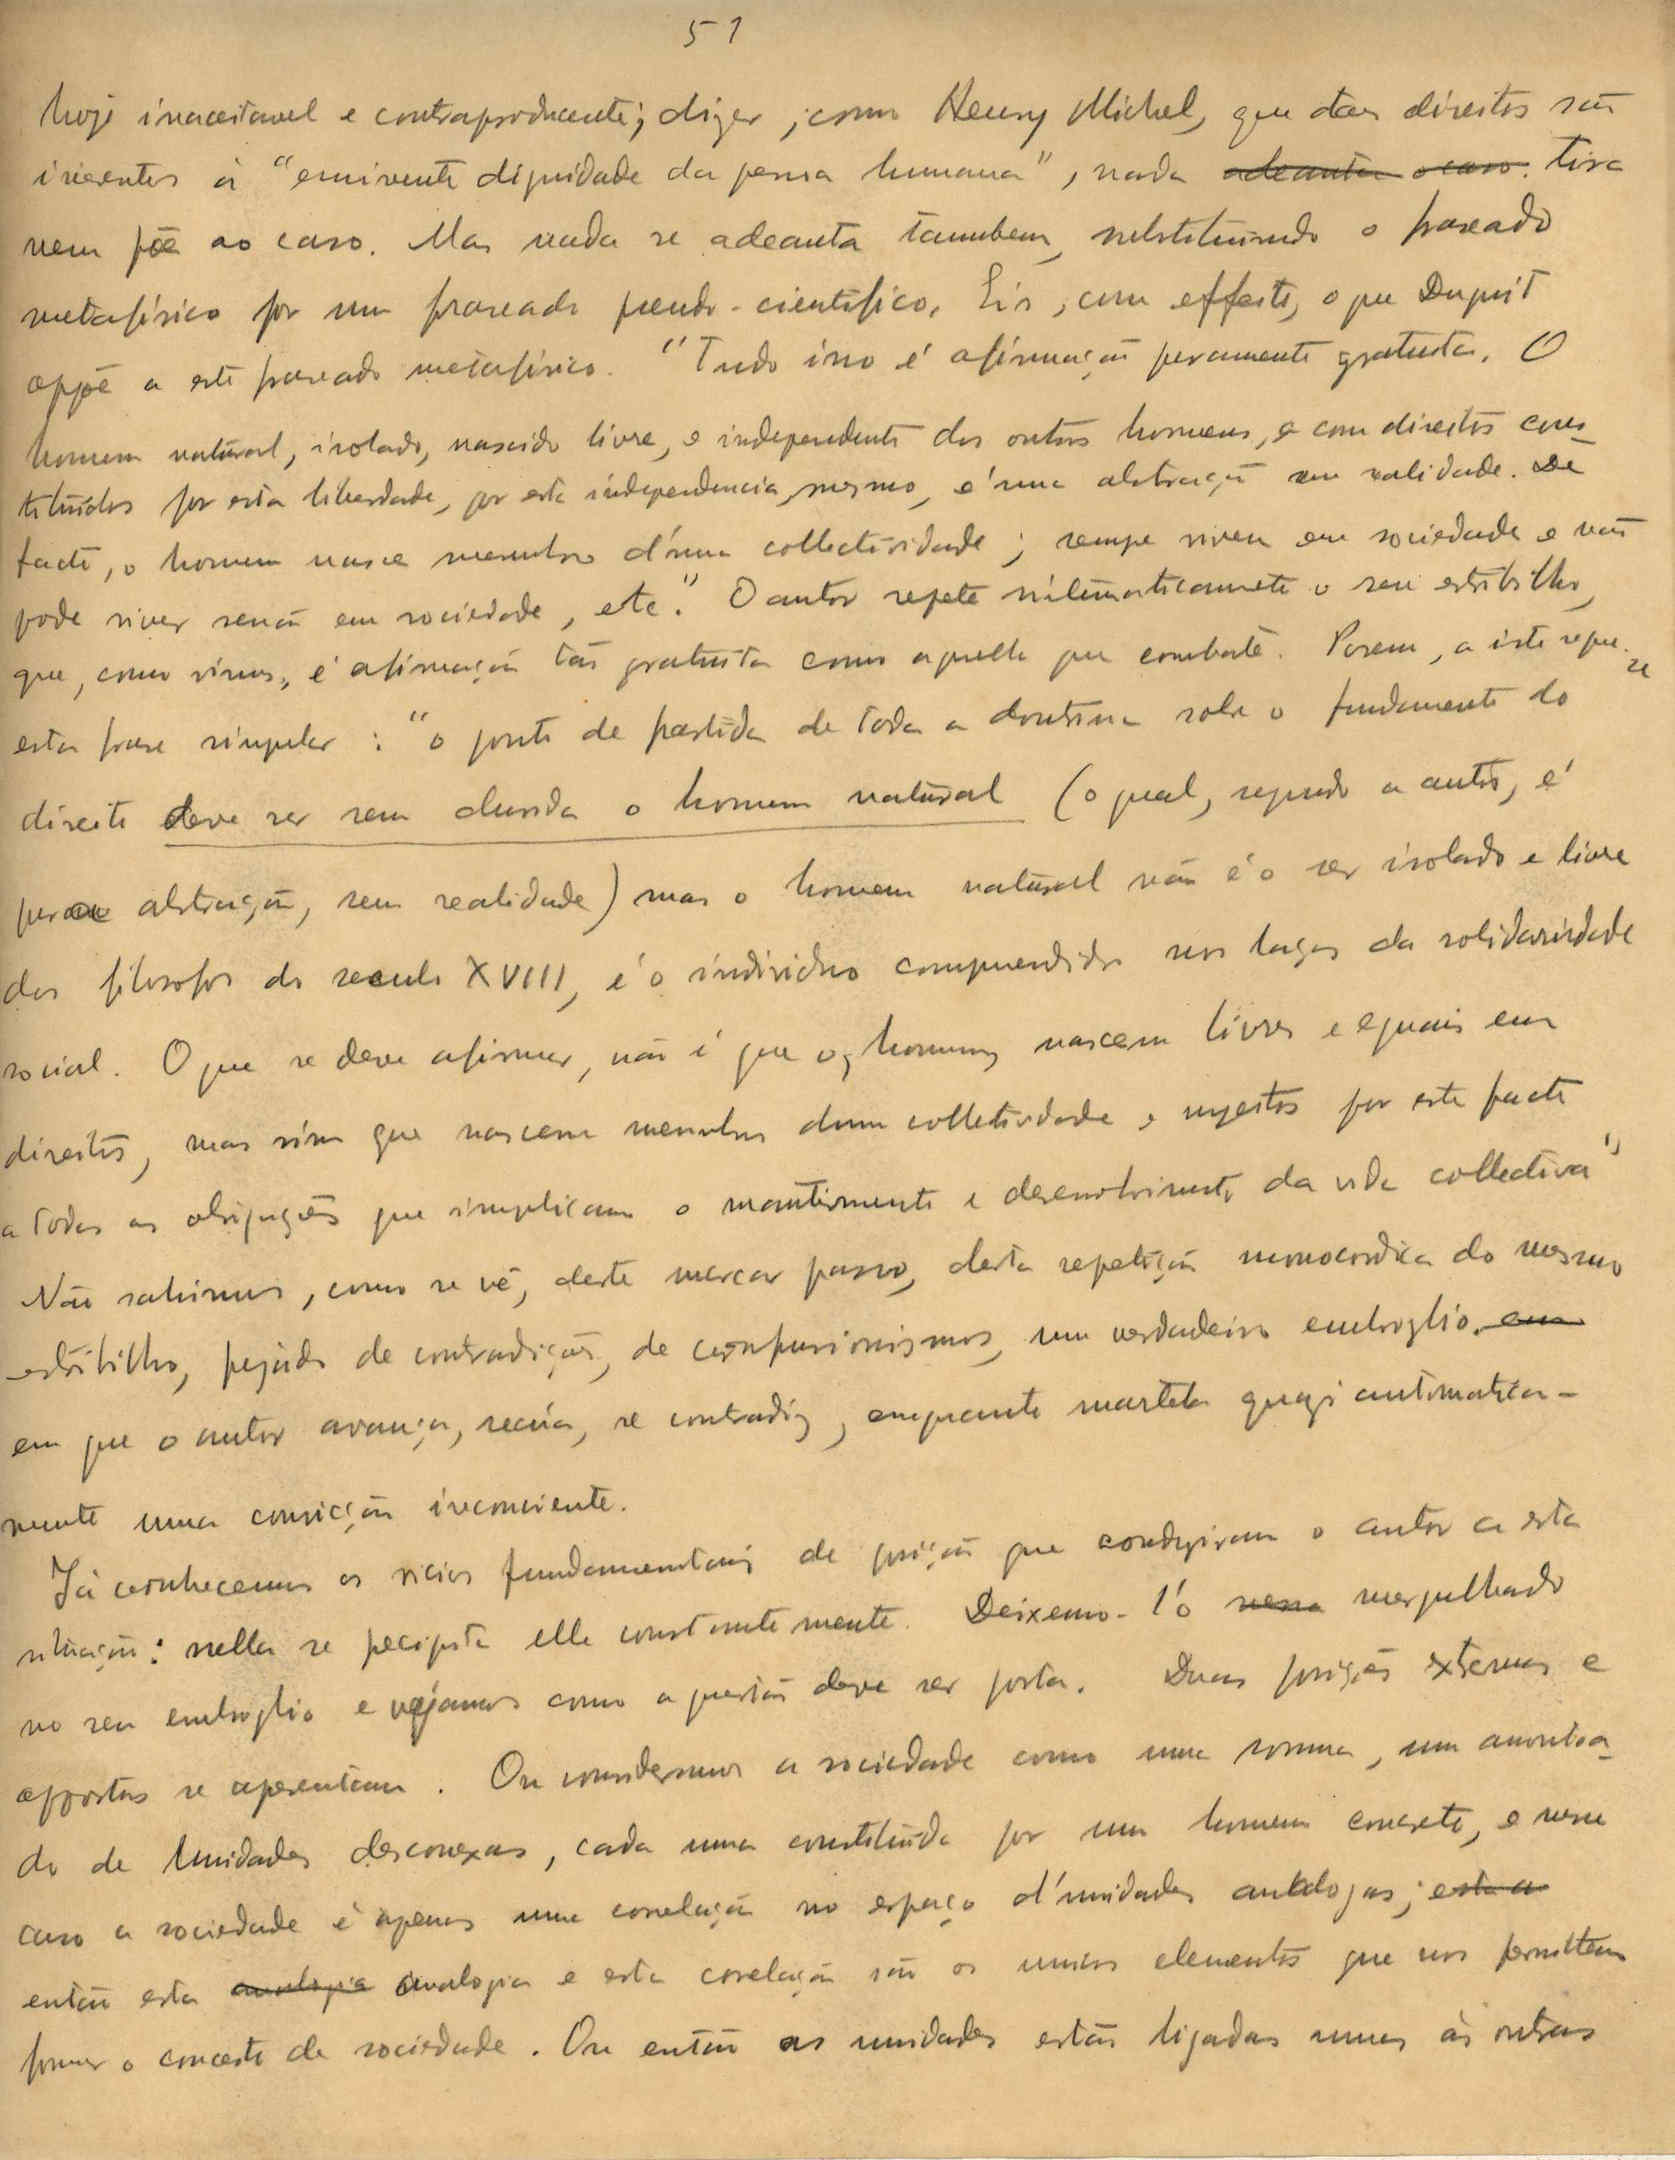 51
hoje inaceitavel e contraproducente; dizer, como Henry Michel, que taes direitos são
inerentes á "eminente dignidade da pessoa humana", nada adeanta o caso. tira
nem põe ao caso. Mas nada se adeanta tambem, substituindo o fraseado
metafísico por um fraseado pseudo-cientifico. Eis, com effeito, o que Duguit
oppõe a este fraseado metafisico. "Tudo isso é afirmação puramente gratuita. O
homem natural, isolado, nascido livre, e independente dos outros homens, e com direitos cons-
tituidos por esta liberdade, por esta independencia, mesmo, é uma abstração sem realidade. De
facto, o homem nasce membro d'uma collectividade; sempre viveu em sociedade e não
pode viver senão em sociedade, etc." O autor repete sistematicamente o seu estribilho,
que, como vimos, é afirmação tão gratuita como aquella que combate. Porem, a isto segue-se
esta frase singular: "o ponto de partida de toda a doutrina sobre o fundamento do
direito deve ser sem duvida o homem natural (o qual, segundo o autor, é
pura abstração, sem realidade) mas o homem natural não é o ser isolado e livre
dos filosofos do seculo XVIII, é o individuo comprendido nos laços da solidariedade
social. O que se deve afirmar, não é que os homens nascem livres e eguais em
direitos, mas sim que nascem membros duma collectividade e sujeitos por este facto
a todas as obrigações que implicam o mantimento e desenvolvimento da vida collectiva"
Não sahimos, como se vê, deste marcar passo, desta repetição monocordica do mesmo
estribilho, pejado de contradições, de confusionismos, um verdadeiro embroglio, em
em que o autor avança, recúa, se contradiz, emquanto martela quasi automatica-
mente uma convicção inconciente.
Já conhecemos os vicios fundamentais de posição que conduziram o autor a esta
situação: nella se precipita elle constantemente. Deixemo-l'o nessa mergulhado
no seu embroglio e vejamos como a questão deve ser posta. Duas posições extremas e
oppostas se apresentam. Ou consideramos a sociedade como uma somma, um amontoa-
do de unidades desconexas, cada uma constituida por um homem concreto, e nesse
caso a sociedade é apenas uma correlação no espaço d'unidades analogas; esta a
então esta analogia analogia e esta correlação são os unicos elementos que nos permittem
formar o conceito de sociedade. Ou então as unidades estão ligadas umas ás outras